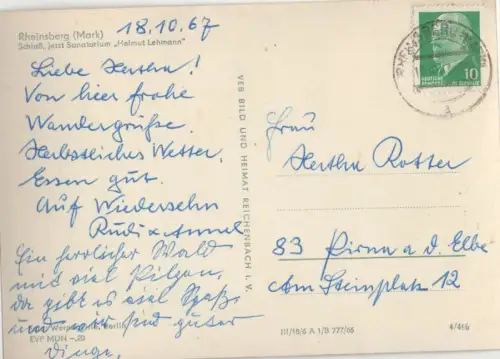 Rheinsberg (Mark)
Schloß, jetzt Sanatorium „Helmut Lehmann"
18.10.67
Liebe Hertha!
Von hier frohe
Wandergrüße.
Herbstliches Wetter,
Essen gut.
Auf Wiedersehn
Rudi x Annel
Ein herrlicher Wald
mit viel Pilzen,
da gibt es viel Spaß
und wir sind guter
Dinge.
Berlin
EVP MDN –,20
VEB BILD UND HEIMAT REICHENBACH I. V.
10
Frau
Hertha Rotter
83 Pirna a. d. Elbe
Am Steinplatz 12
III/18/6 A 1/B 777/65
4/466